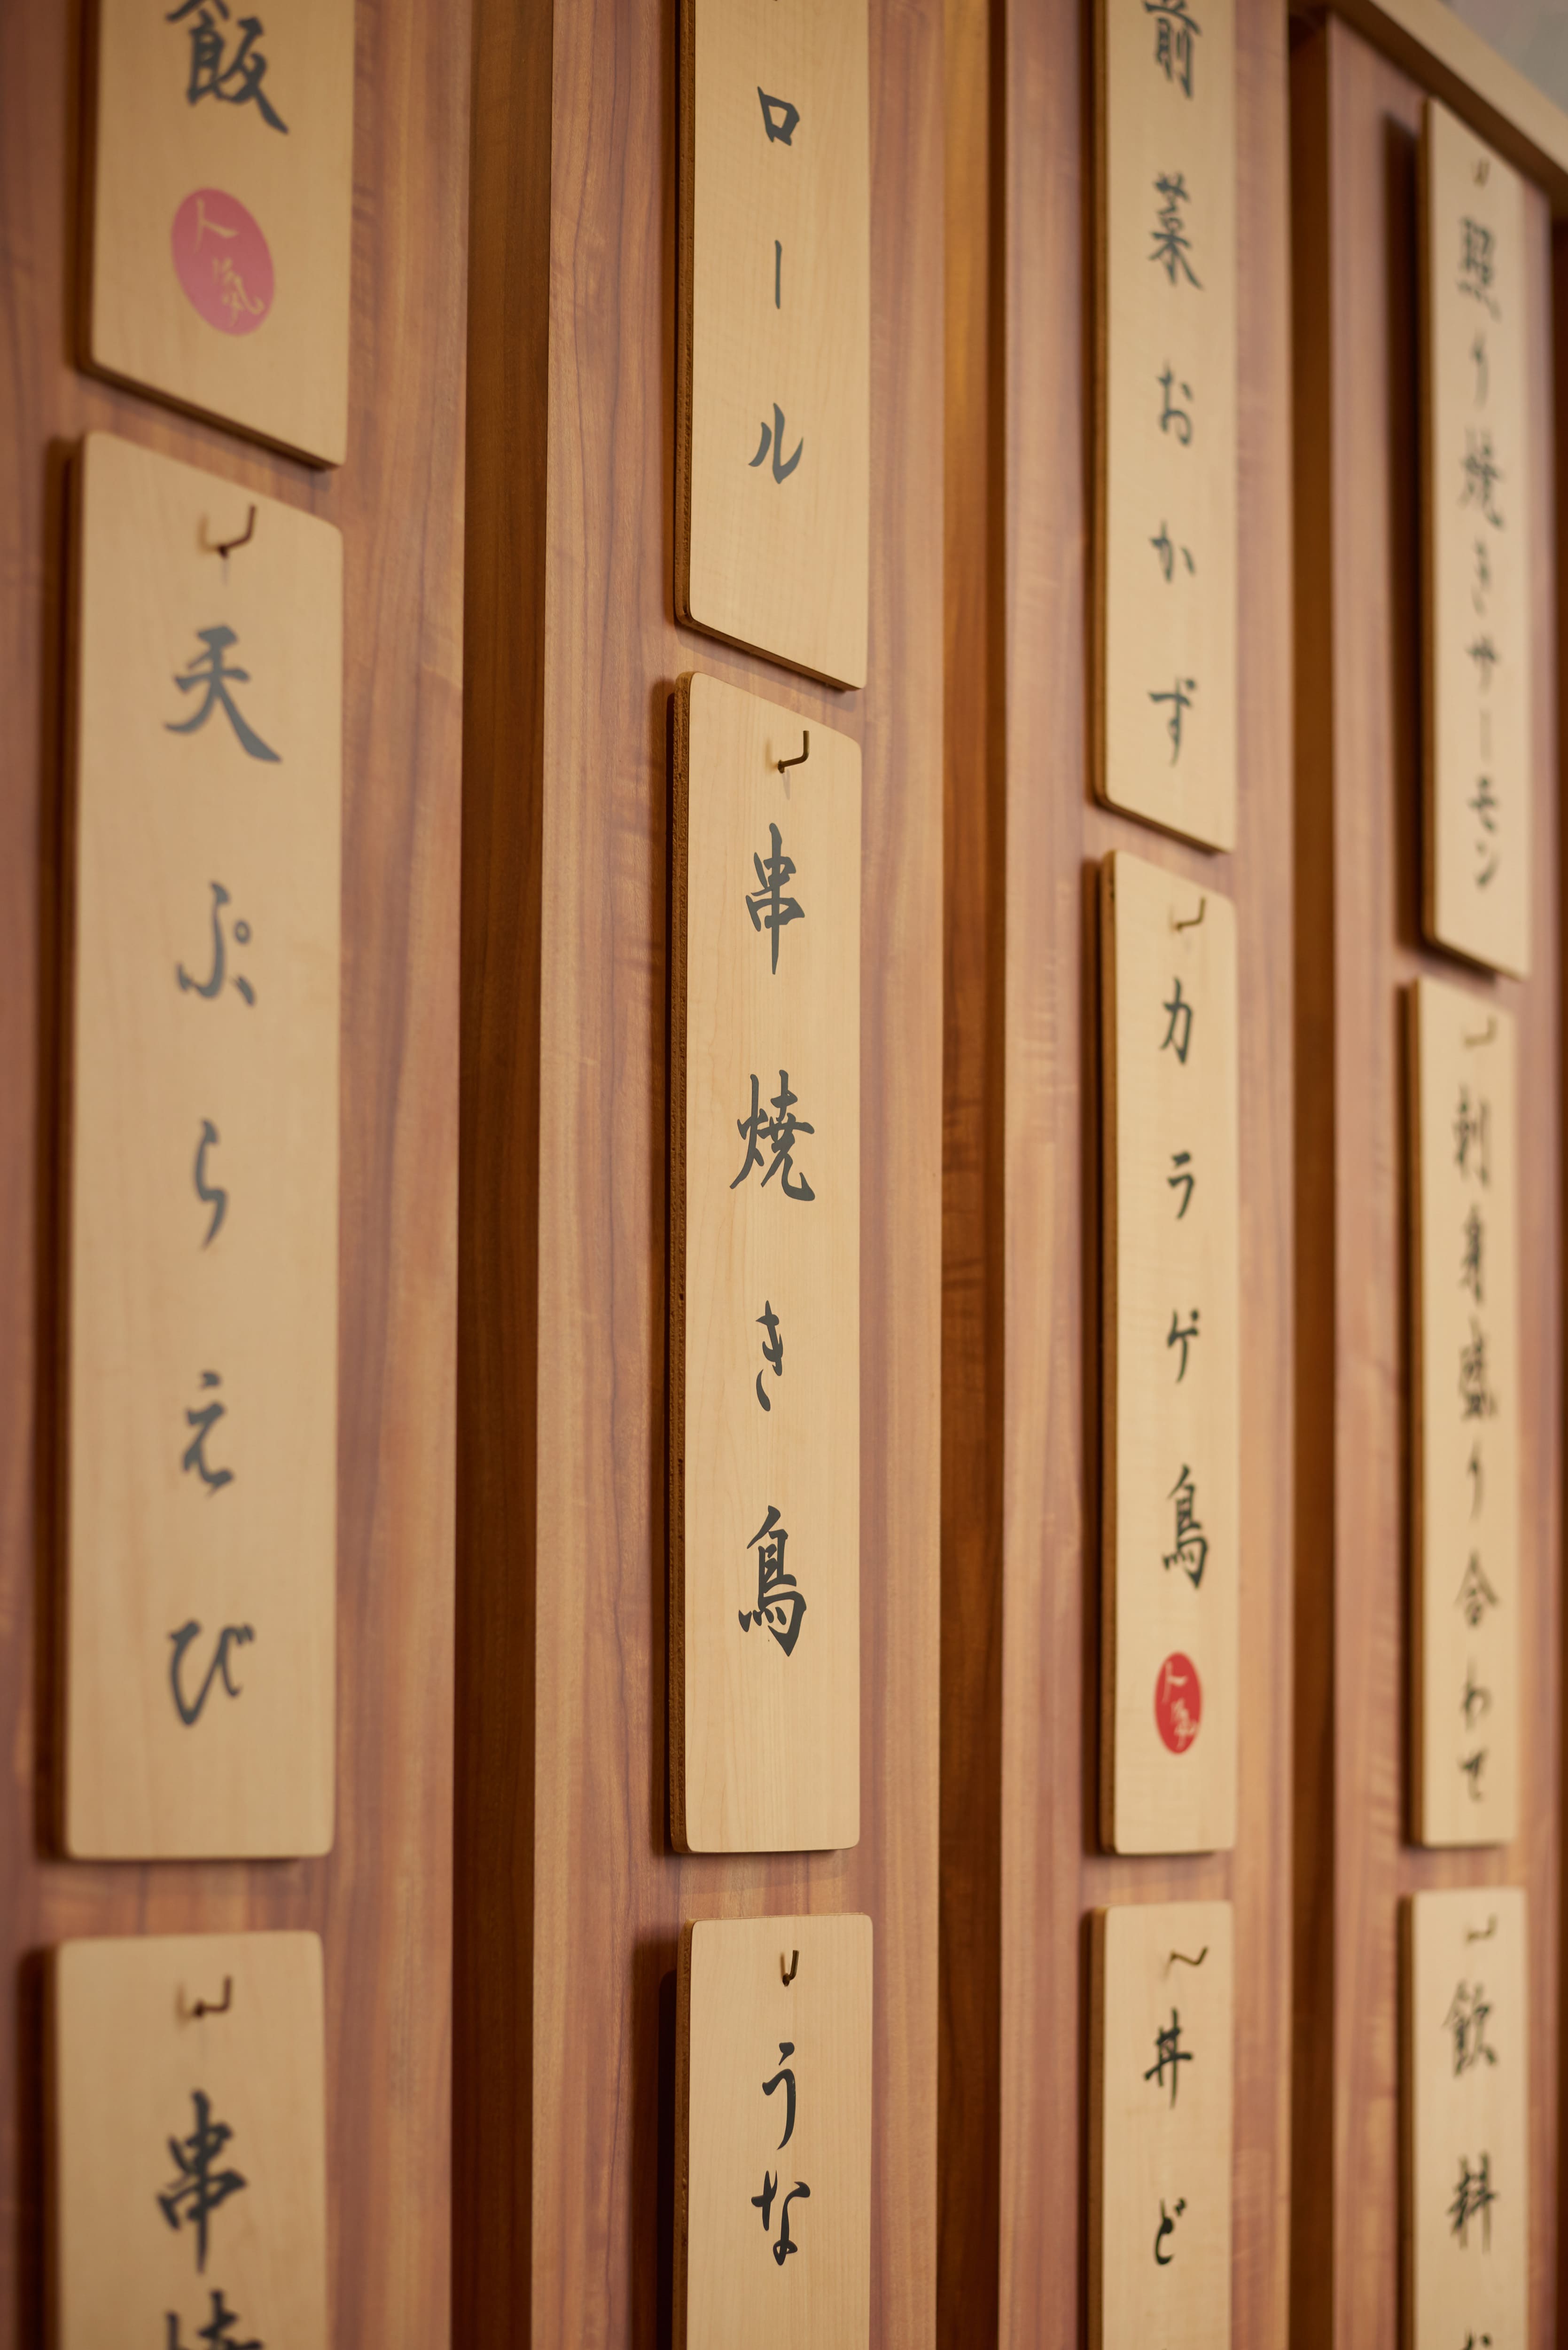 照り焼きサーモン
刺身盛り合わせ
飲料
前菜おかず
カラゲ鳥
人気
丼ど
ロール
串焼き鳥
うな
飯
人気
天ぷらえび
串焼